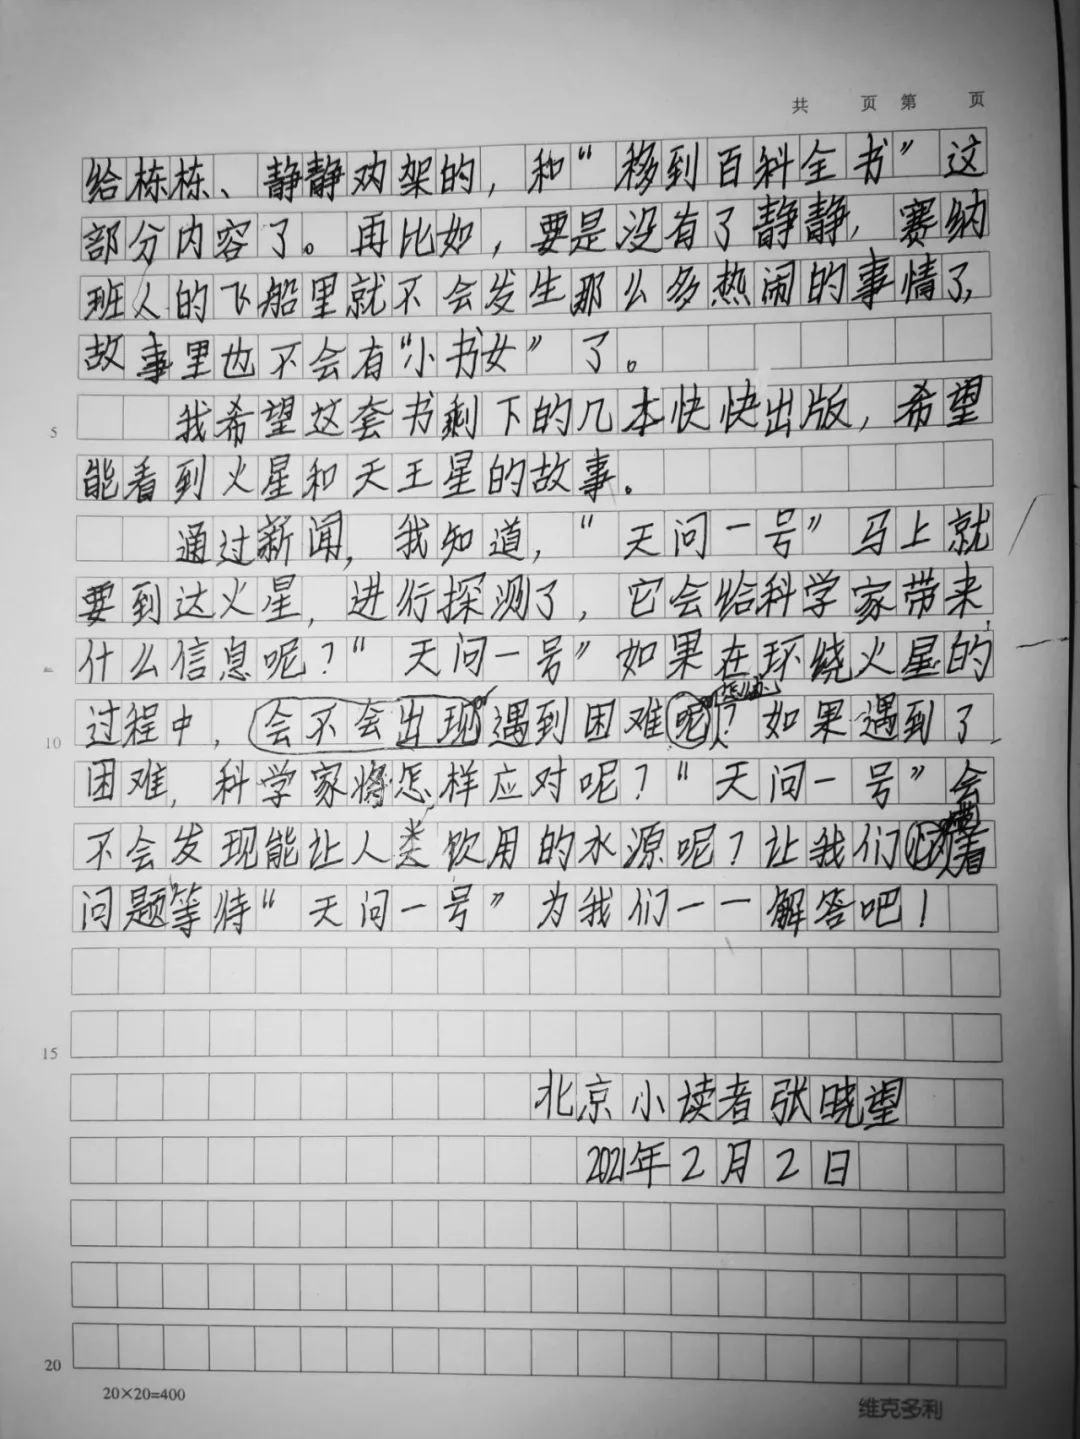 共 页 第 页
给栋栋、静静劝架的，和“移到百科全书”这
部分内容了。再比如，要是没有了静静，赛纳
班人的飞船里就不会发生那么多热闹的事情了，
故事里也不会有“小书女”了。
我希望这套书剩下的几本快快出版，希望
5
能看到火星和天王星的故事。
通过新闻，我知道，“天问一号”马上就
要到达火星，进行探测了，它会给科学家带来
什么信息呢？“天问一号”如果在环绕火星的
怎么办
过程中，会不会出现遇到困难呢？如果遇到了
10
困难，科学家将怎样应对呢？“天问一号”会
不会发现能让人类饮用的水源呢？让我们带着
问题等待“天问一号”为我们一一解答吧！
15
北京小读者张晓望
2021年2月2日
20
20×20=400
维克多利